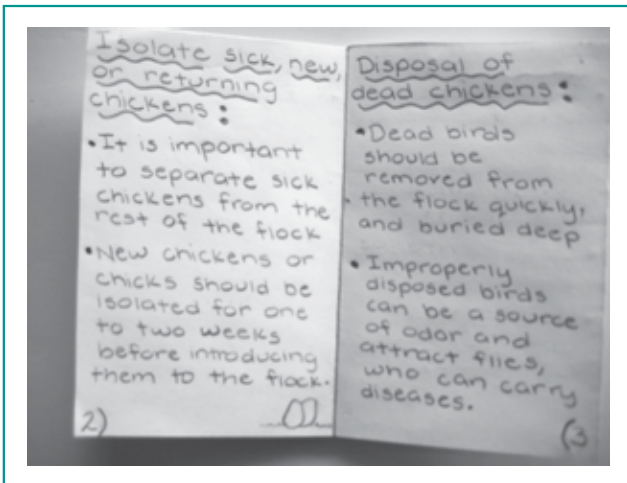 Isolate sick, new,
or returning
chickens:
• It is important
to separate sick
chickens from the
rest of the flock
• New chickens or
chicks should be
isolated for one
to two weeks
before introducing
them to the flock.
2)
Disposal of
dead chickens:
• Dead birds
should be
removed from
the flock quickly,
and buried deep
• Improperly
disposed birds
can be a source
of odor and
attract flies,
who can carry
diseases.
(3